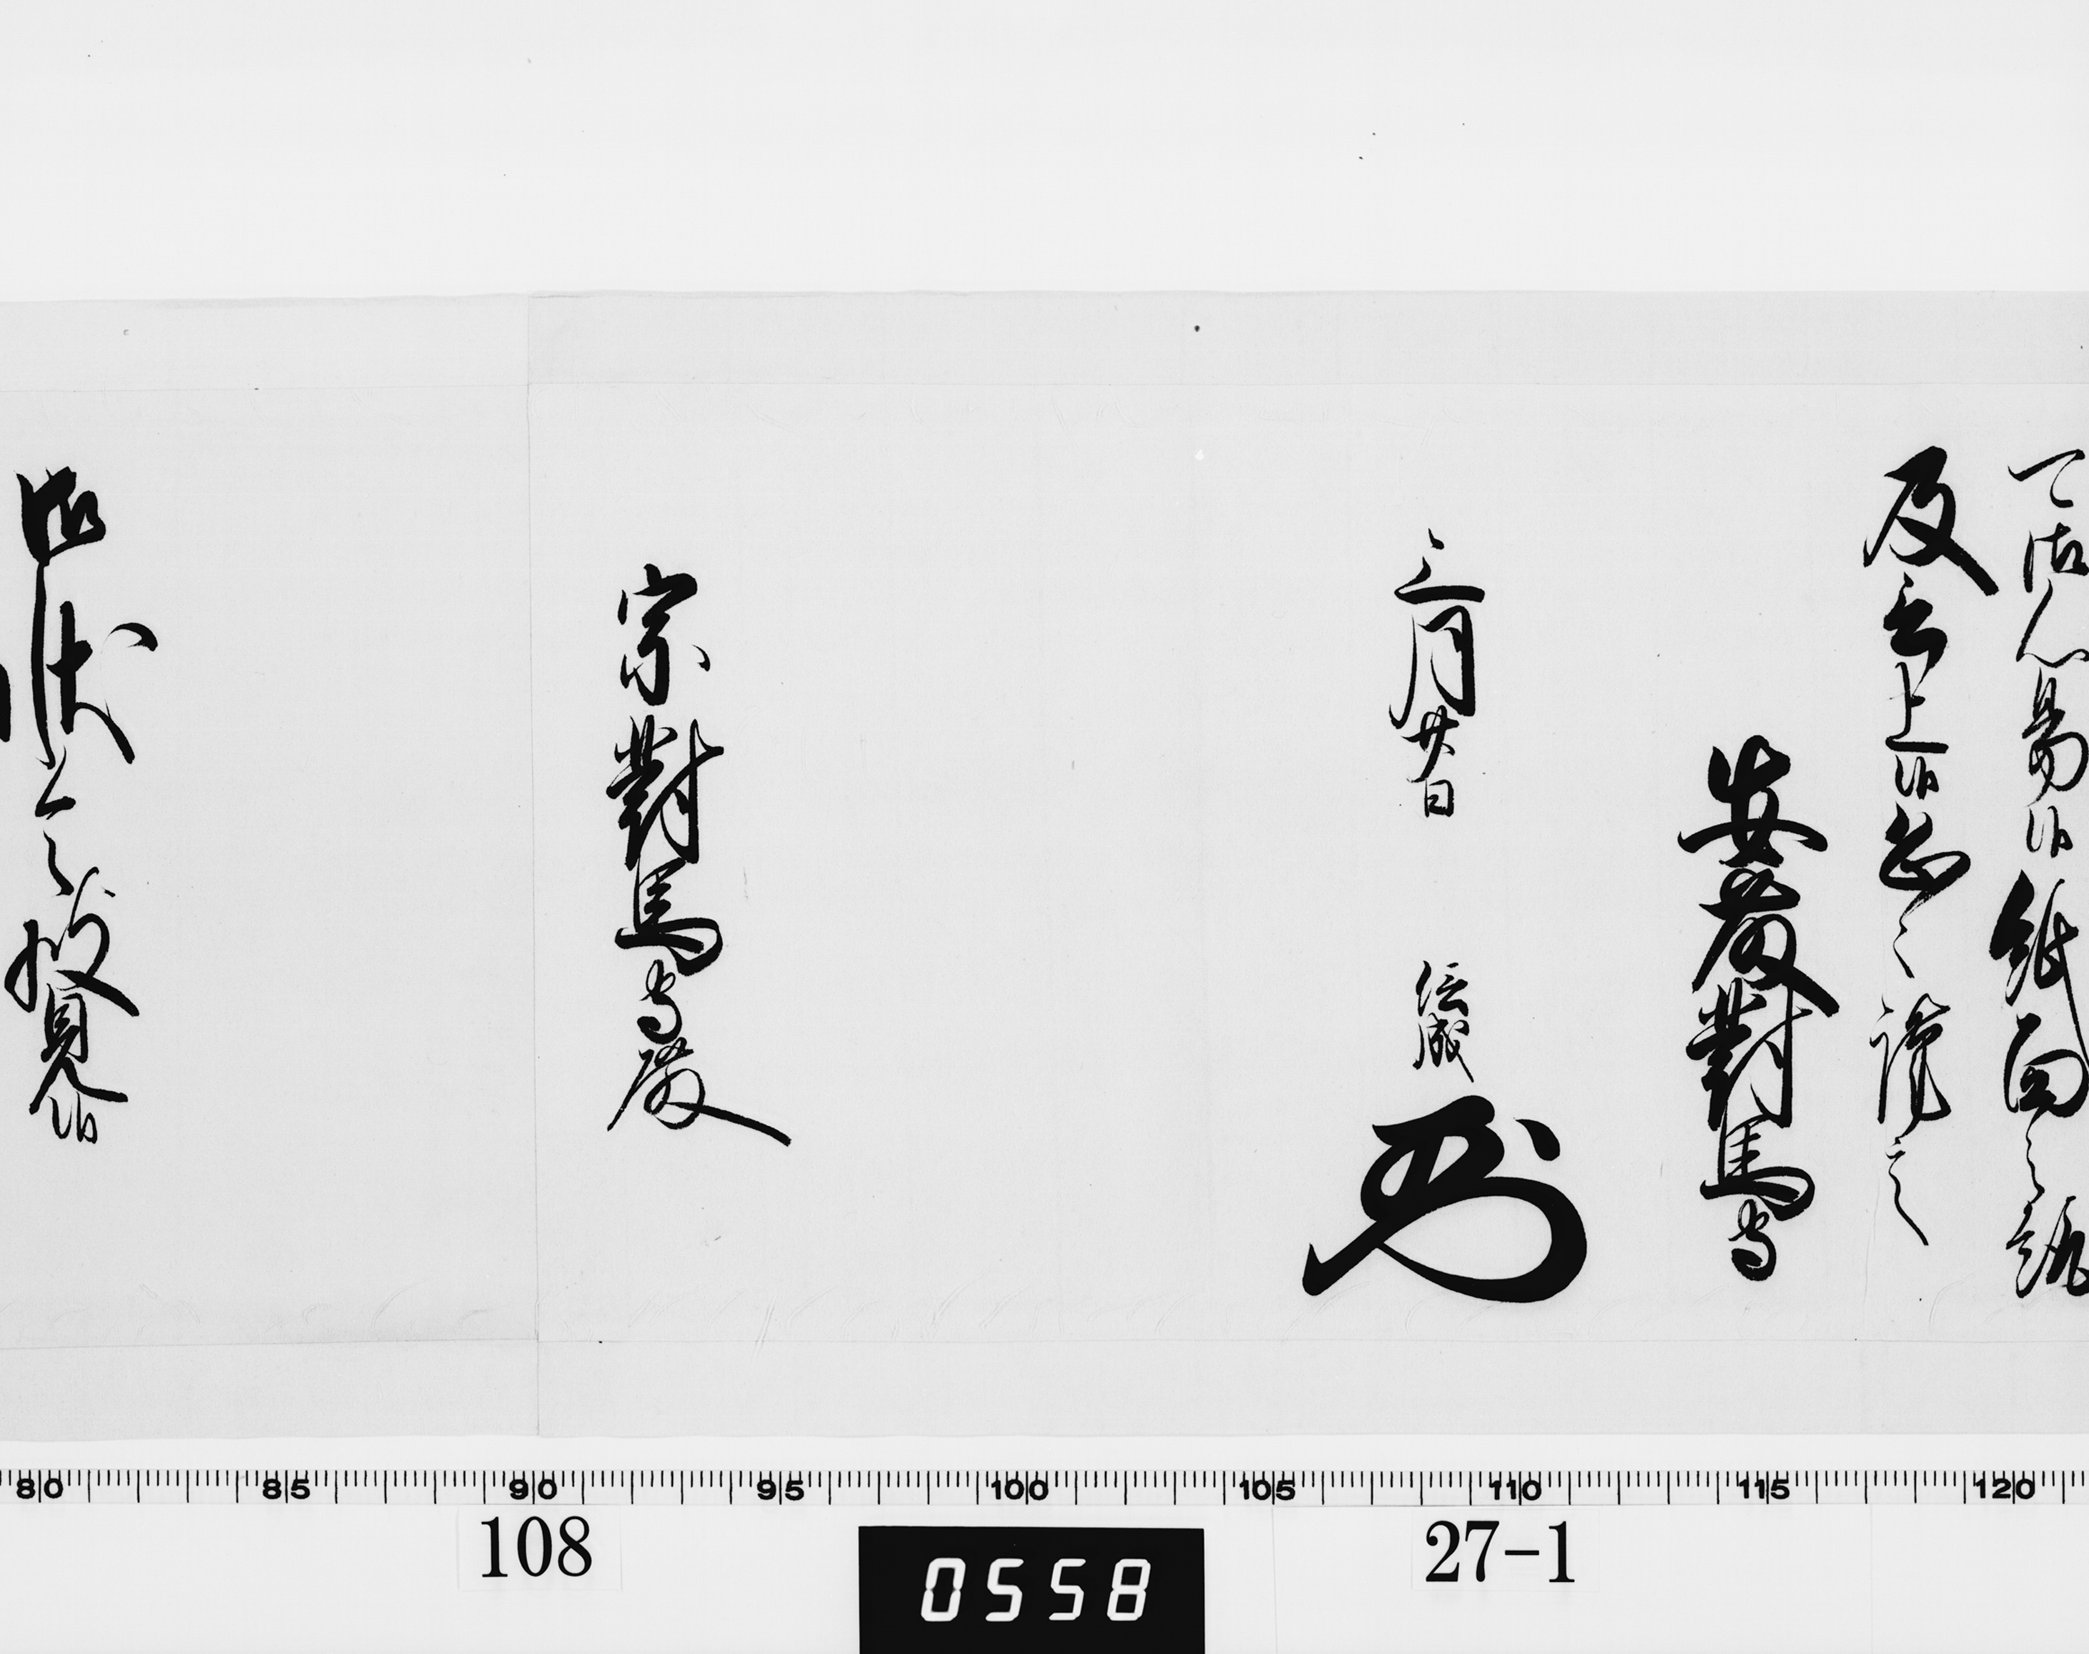 可御心易候紙面之趣
及言上候恐々謹言
安藤對馬守
三月廿日 信成
宗對馬守殿
御状令披見候
80 85 90 95 100 105 110 115 120
108
0558
27-1